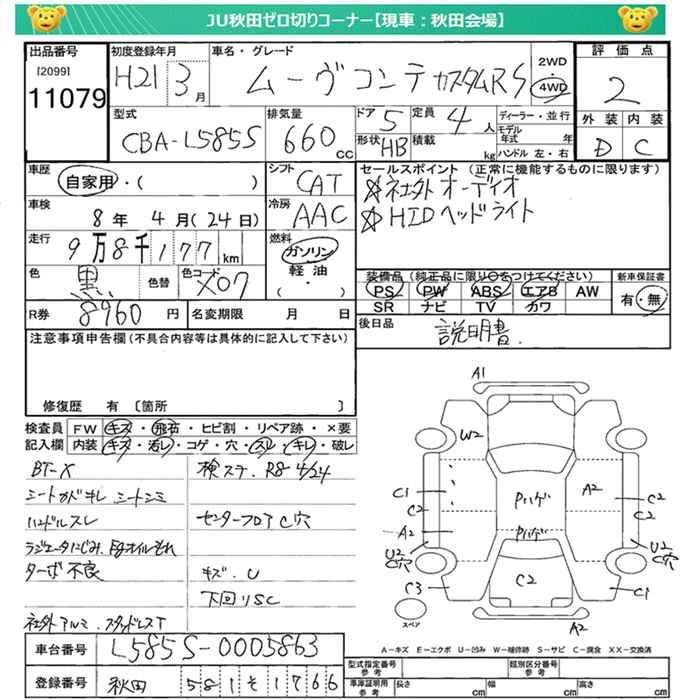 JU秋田ゼロ切りコーナー【現車：秋田会場】
出品番号
[2099]
11079
初度登録年月
H21 3月
車名・グレード
ムーヴコンテ カスタムRS
2WD
4WD
評価点
2
外装 内装
D C
型式
CBA-L585S
排気量
660cc
ドア
5
定員
4人
形状
HB
積載
kg
ディーラー・並行
モデル年式 年
ハンドル 左・右
車歴
自家用・( )
シフト
CAT
車検
8年4月(24日)
冷房
AAC
走行
9万8千177km
燃料
ガソリン
軽油
( ・ )
色
黒
色替
色コード
X07
R券
8960円
名変期限 月 日
セールスポイント(正常に機能するものに限ります)
☆社外オーディオ
☆HIDヘッドライト
装備品(純正品に限り○をつけてください)
PS PW ABS エアB AW
SR ナビ TV カワ
新車保証書
有・無
後日品
説明書.
注意事項申告欄(不具合内容等は具体的に記入して下さい)
修復歴 有 〔箇所 〕
検査員記入欄
FW キズ・飛石・ヒビ割・リペア跡・×要
内装 キズ・汚レ・コゲ・穴・スレ・キレ・破レ
BT-X
シートカドキレ シートシミ
ハンドルスレ
ターボ不良
社外アルミ、スタッドレスT
検ステ.R8 4/24
センターフロアC穴
キズ.U
下回りSC
A1
W2
C1
C2
A2
U2
C穴
C3
Pハゲ
Pハゲ
C2
A2
C2
C2
U2
C穴
C1
A2
スペア
A－キズ E－エクボ U－凹み W－補修跡 S－サビ C－腐食 XX－交換済
車台番号
L585S-0005863
登録番号
秋田 581そ1766
型式指定番号
参考
類別区分番号
参考
車庫証明用
参考
長さ cm
幅 cm
高さ cm